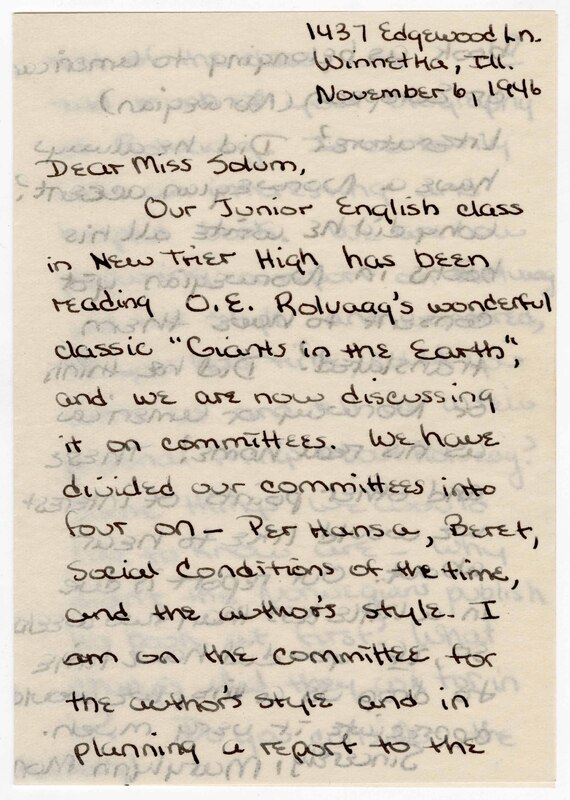 1437 Edgewood Ln.
Winnetka, Ill.
November 6, 1946
Dear Miss Solum,
Our Junior English class
in New Trier High has been
reading O.E. Rolvaag's wonderful
classic "Giants in the Earth",
and we are now discussing
it on committees. We have
divided our committees into
four on — Per Hansa, Beret,
Social Conditions of the time,
and the author's style. I
am on the committee for
the author's style and in
planning a report to the